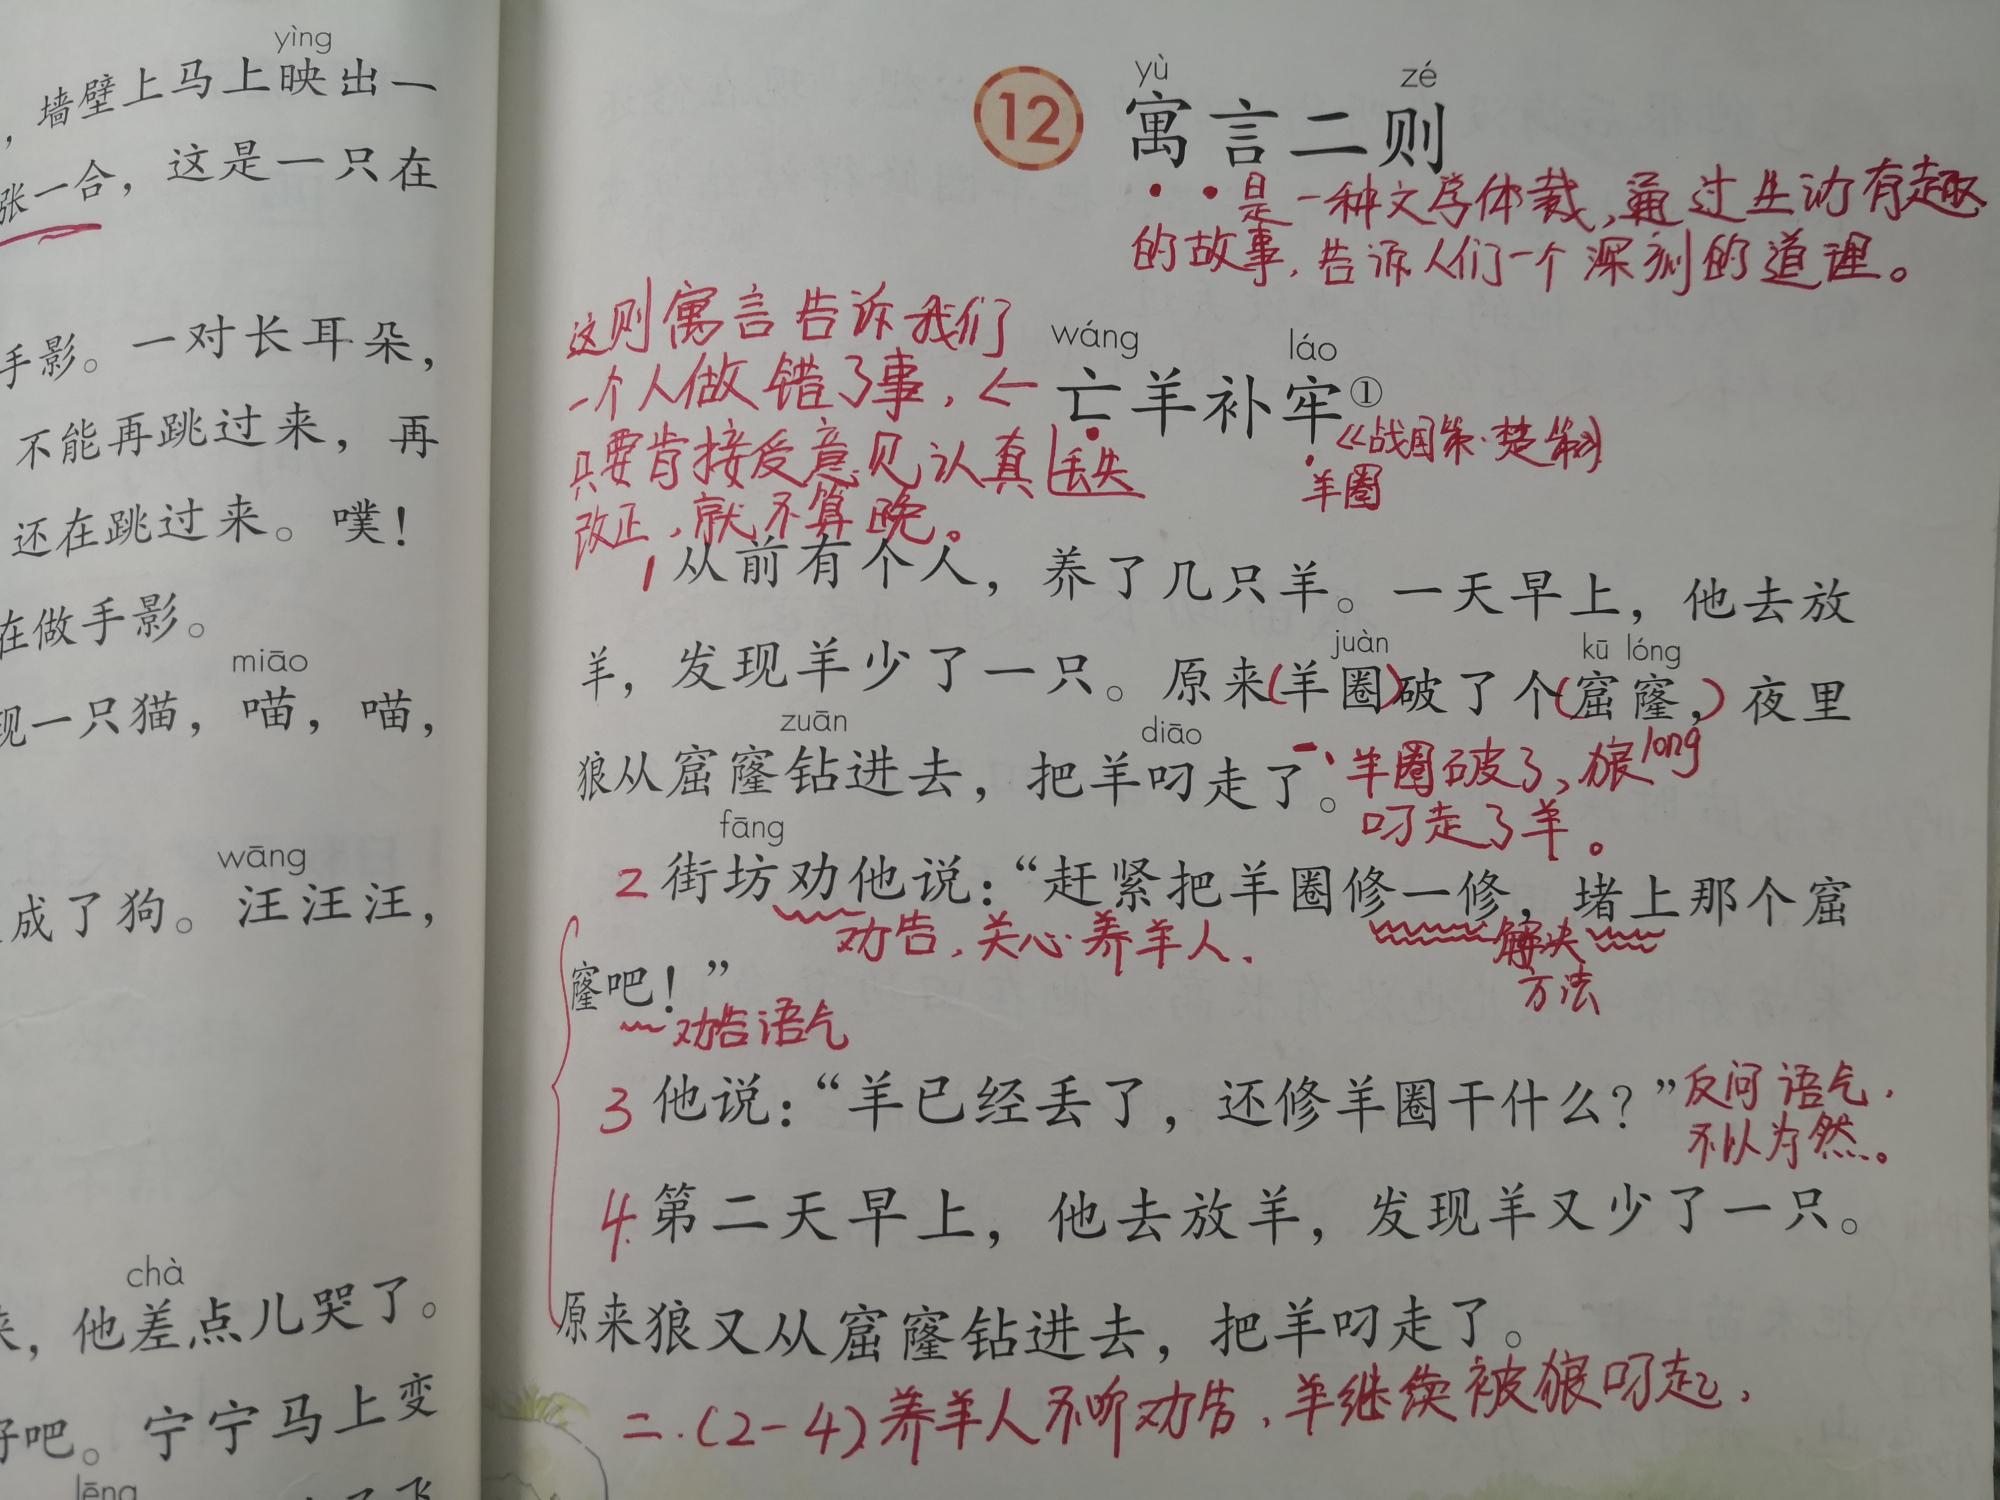 yìng
，墙壁上马上映出一
张一合，这是一只在
手影。一对长耳朵，
不能再跳过来，再
还在跳过来。噗！
在做手影。
miāo
现一只猫，喵，喵，
wāng
成了狗。汪汪汪，
chà
来，他差点儿哭了。
好吧。宁宁马上变
lēng
yù zé
12 寓言二则
是一种文学体裁，通过生动有趣
的故事，告诉人们一个深刻的道理。
这则寓言告诉我们
一个人做错了事，
只要肯接受意见认真
改正，就不算晚。
wáng láo
←亡羊补牢①
丢失
《战国策·楚策》
羊圈
1 从前有个人，养了几只羊。一天早上，他去放
juàn kū lóng
羊，发现羊少了一只。原来(羊圈)破了个(窟窿，)夜里
zuān diāo
狼从窟窿钻进去，把羊叼走了。
long
一、羊圈破了，狼
叼走了羊。
fāng
2 街坊劝他说：“赶紧把羊圈修一修，堵上那个窟
劝告，关心养羊人.
解决
方法
窿吧！”
劝告语气
3 他说：“羊已经丢了，还修羊圈干什么？”
反问语气，
不以为然。
4. 第二天早上，他去放羊，发现羊又少了一只。
原来狼又从窟窿钻进去，把羊叼走了。
二.(2-4)养羊人不听劝告，羊继续被狼叼走，